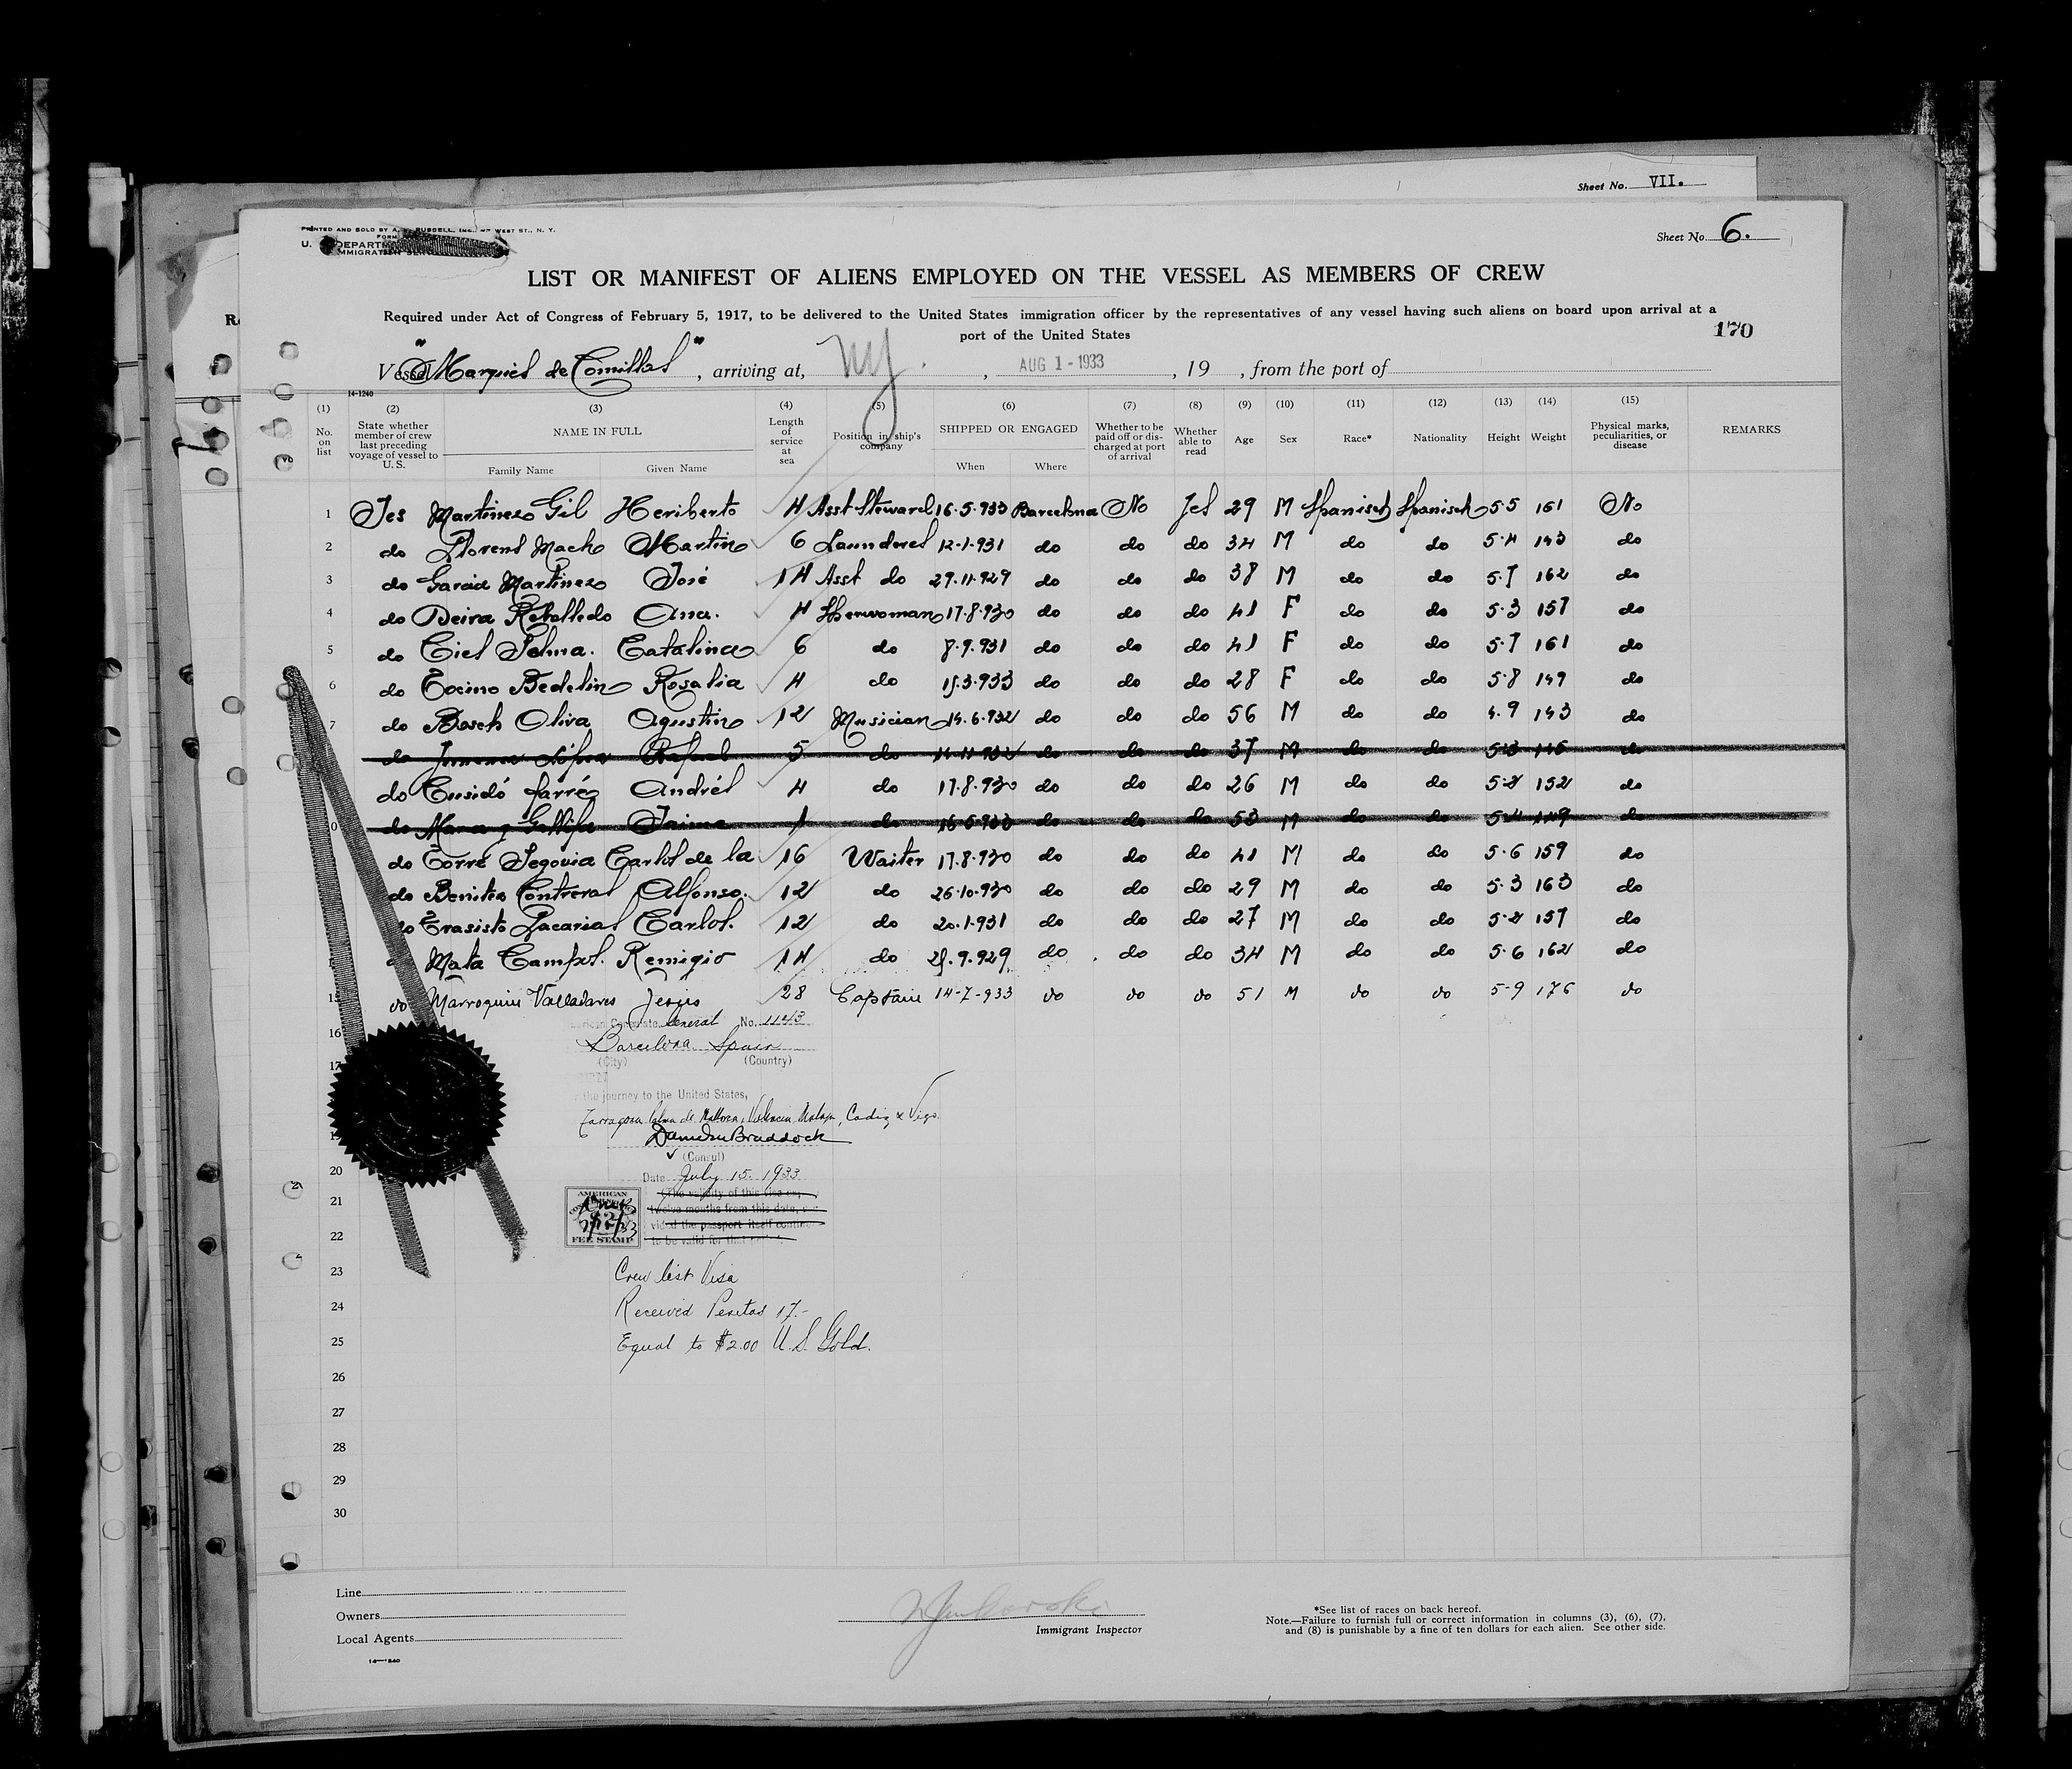 Sheet No. VII.
PRINTED AND SOLD BY A. RUSSELL, INC., WEST ST., N. Y.
FORM
U. DEPARTM
IMMIGRATION
Sheet No. 6.
LIST OR MANIFEST OF ALIENS EMPLOYED ON THE VESSEL AS MEMBERS OF CREW
Required under Act of Congress of February 5, 1917, to be delivered to the United States immigration officer by the representatives of any vessel having such aliens on board upon arrival at a
port of the United States
170
Vessel "Marqués de Comillas", arriving at, NY. , AUG 1 - 1933 , 19 , from the port of
14-1240
(1) (2) (3) (4) (5) (6) (7) (8) (9) (10) (11) (12) (13) (14) (15)
No. on list
State whether member of crew last preceding voyage of vessel to U. S.
NAME IN FULL
Family Name
Given Name
Length of service at sea
Position in ship's company
SHIPPED OR ENGAGED
When
Where
Whether to be paid off or discharged at port of arrival
Whether able to read
Age
Sex
Race*
Nationality
Height
Weight
Physical marks, peculiarities, or disease
REMARKS
1 Yes Martinez Gil Heriberto 4 Asst Steward 16.5.933 Barcelona No Yes 29 M Spanisch Spanisch 5.5 161 No
2 do Llorens Mach Martin 6 Launderes 12-1-931 do do do 34 M do do 5.4 143 do
3 do Garcia Martinez José 14 Asst do 27.11.929 do do do 38 M do do 5.7 162 do
4 do Deira Rebolledo Ana. 4 17.8.930 do do do 41 F do do 5.3 157 do
5 do Ciel Catalina 6 do 8.9.931 do do do 41 F do do 5.7 161 do
6 do Tocino Bedelin Rosalia 4 do 15.3.933 do do do 28 F do do 5.8 149 do
7 do Bosch Oliva Agustin 12 Musician 14.6.932 do do do 56 M do do 4.9 143 do
do Rafael 5 do 14.11.932 do do do 37 M do do 5.3 do
do Cusidó farré Andrés 4 do 17.8.930 do do do 26 M do do 5.2 152 do
do Jaime 1 do 16.5.933 do do do 53 M do do 5.4 149 do
do Torre Segovia Carlos de la 16 Waiter 17.8.930 do do do 41 M do do 5.6 159 do
do Benitez Contreras Alfonso. 12 do 26.10.930 do do do 29 M do do 5.3 163 do
do Trasisto Zacarias Carlos. 12 do 20.1.931 do do do 27 M do do 5.2 157 do
Mata Campos. Remigio 14 do 25.9.929 do do do 34 M do do 5.6 162 do
15 do Marroquin Valladares Jesus 28 Captain 14-7-933 do do do 51 M do do 5-9 176 do
16
American Consulate General No. 1143
Barcelona Spain
(City) (Country)
17
the journey to the United States,
Tarragona, Palma de Mallorca, Valencia, Malaga, Cadiz & Vigo.
Braddock
(Consul)
20
Date July 15. 1933
21
(The validity of this visa
twelve months from this date,
vided the passport itself continues
to be valid for that
AMERICAN
FEE STAMP
22
23
Crew list Visa
24
Received Pesetas 17.-
25
Equal to $2.00 U.S. Gold.
26
27
28
29
30
Line
Owners
Local Agents
14—1240
Immigrant Inspector
*See list of races on back hereof.
Note.—Failure to furnish full or correct information in columns (3), (6), (7),
and (8) is punishable by a fine of ten dollars for each alien. See other side.